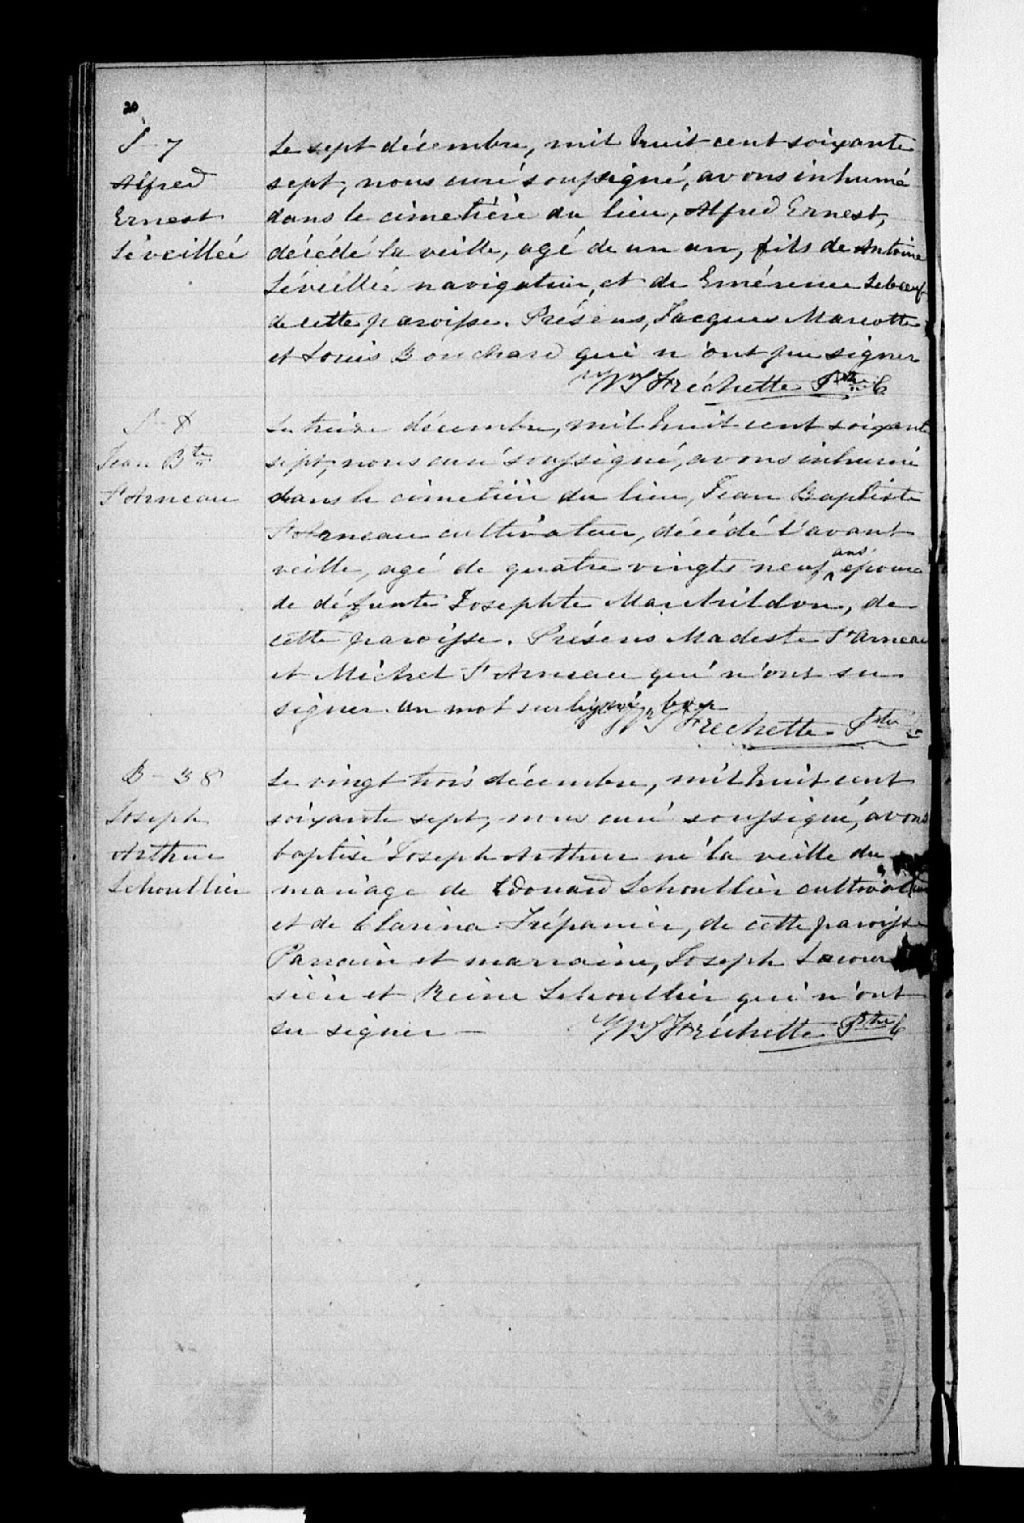 20
S-7
Alfred
Ernest
Léveillée
Le sept décembre, mil huit cent soixante
sept, nous curé soussigné, avons inhumé
dans le cimetière du lieu, Alfred Ernest,
décédé la veille, agé de un an, fils de Antoine
Léveillée navigateur, et de Emérence Lebœuf
de cette paroisse. Présens, Jacques Marcotte
et Louis Bouchard qui n'ont pu signer
Fréchette Ptre C
S-8
Jean Bte
St Arneau
Le treize décembre, mil huit cent soixante
sept, nous curé soussigné, avons inhumé
dans le cimetière du lieu, Jean Baptiste
St Arneau cultivateur, décédé l'avant
veille, agé de quatre vingts neuf ans époux
de défunte Josephte Manhildon, de
cette paroisse. Présens Modeste St Arneau
et Michel St Arneau qui n'ont su
signer. un mot surligné bon
Frechette Ptre
B-38
Joseph
Arthur
Lehoullier
Le vingt trois décembre, mil huit cent
soixante sept, nous curé soussigné, avons
baptisé Joseph Arthur né la veille du
mariage de Edouard Lehoullier cultivateur
et de Clarina Trépanier, de cette paroisse
Parrain et marraine, Joseph Lacour
sière et Reine Lehoullier qui n'ont
su signer —
Fréchette Ptre C